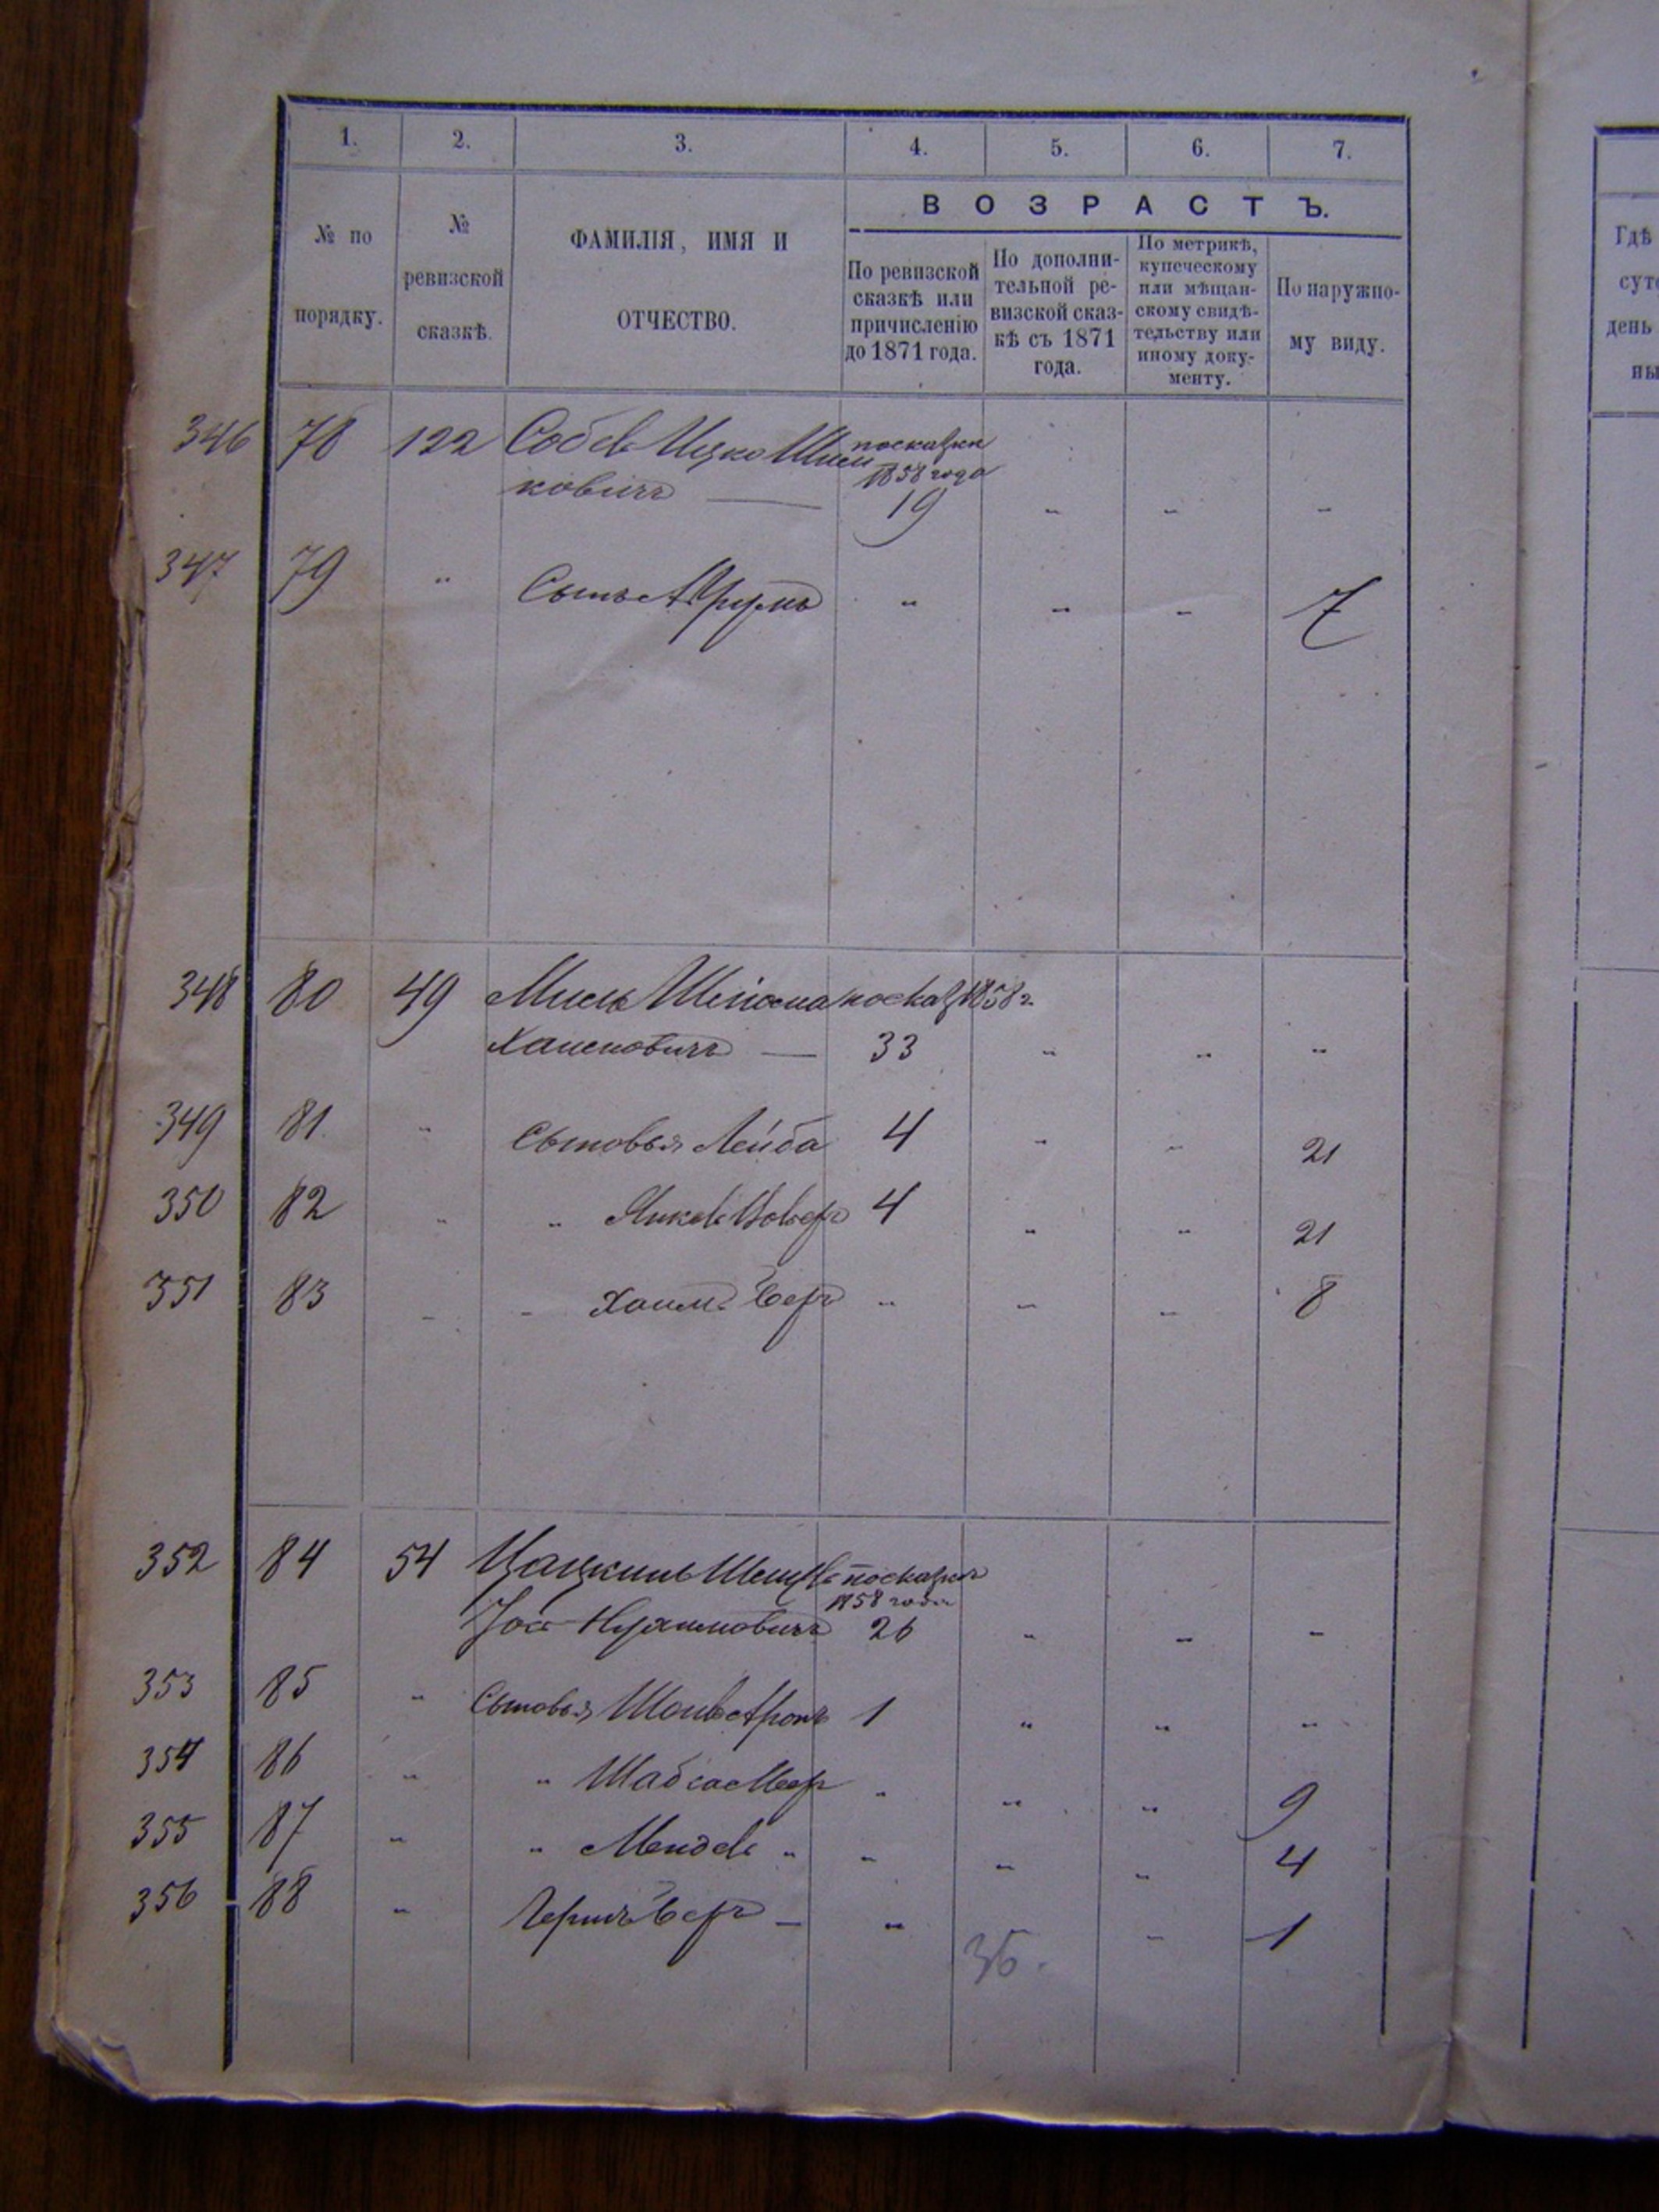 1. 2. 3. 4. 5. 6. 7.
ВОЗРАСТЪ.
№ по порядку.
№ ревизской сказкѣ.
ФАМИЛІЯ, ИМЯ И
ОТЧЕСТВО.
По ревизской
сказкѣ или
причисленію
до 1871 года.
По дополни-
тельной ре-
визской сказ-
кѣ съ 1871
года.
По метрикѣ,
купеческому
или мѣщан-
скому свидѣ-
тельству или
иному доку-
менту.
По наружно-
му виду.
Гдѣ
346 78 122 Собель Ицко по сказкѣ
1858 года
ковичъ — 19 " " "
347 79 " Сынъ " " " 7
348 80 49 по сказ 1858 г.
— 33 " " "
349 81 " Сыновья Лейба 4 " " 21
350 82 " " Янкель 4 " " 21
351 83 " " Хаимъ Беръ " " " 8
352 84 54 Цацкинъ по сказкѣ
1858 года
26 " " "
353 85 " Сыновья 1 " " "
354 86 " " " " " 9
355 87 " " Мендель " " " " 4
356 88 " Гершъ Беръ — " " 1
36.